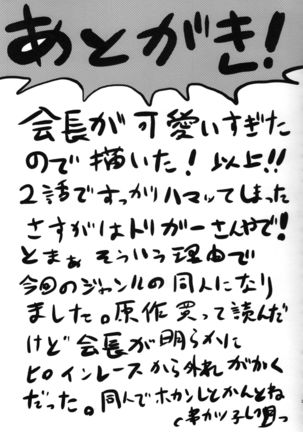 あとがき!
会長が可愛いすぎた
ので描いた!以上!!
2話ですっかりハマッてしまった
さすがはトリガーさんやで!
とまぁ そういう理由で
今回のジャンルの同人になり
ました。原作買って読んだ
けど会長が明らかに
ヒロインレースから外れ
だった。同人でホカンしとかんとね